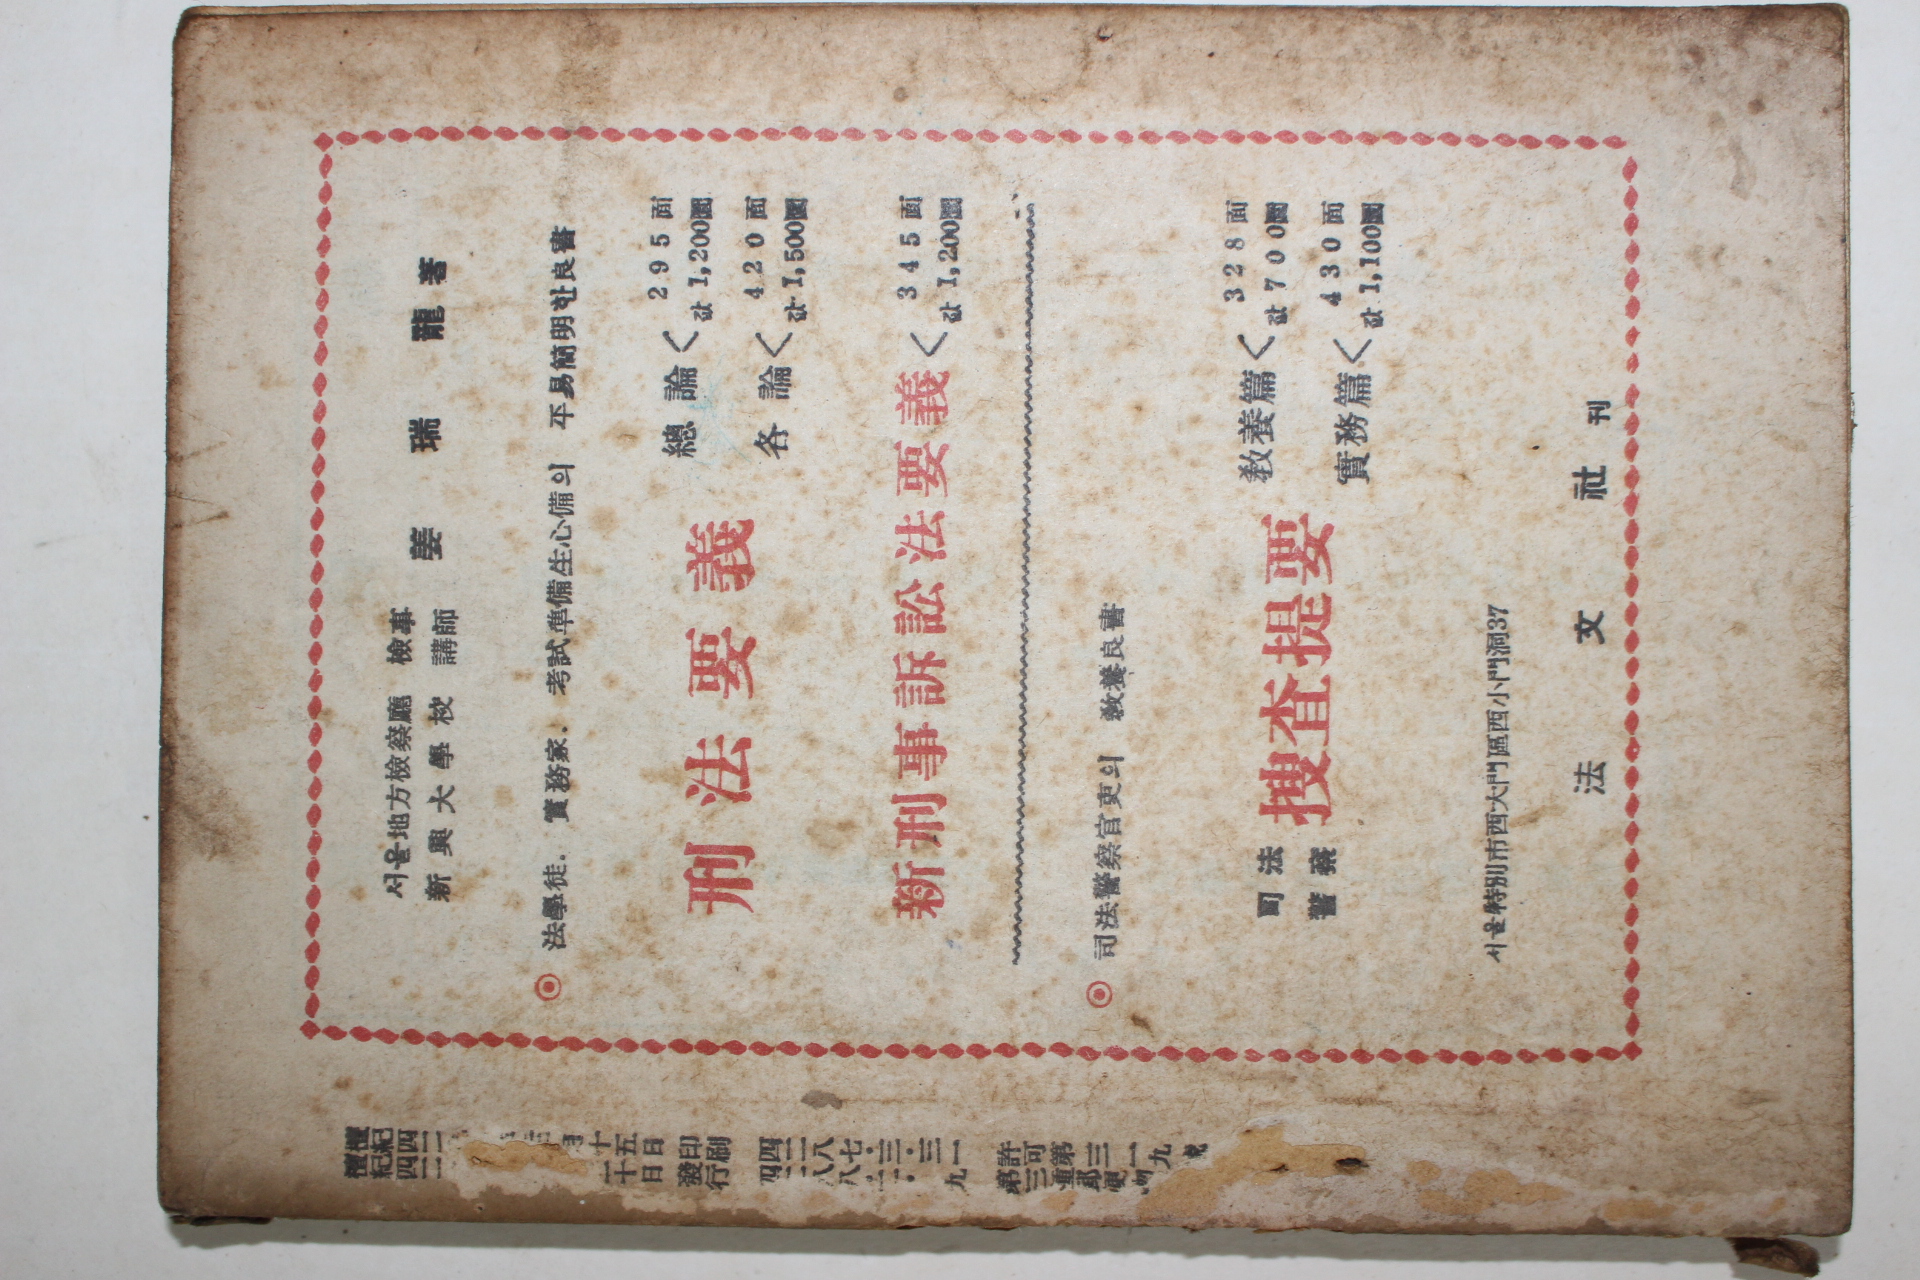 서울地方檢察廳 檢事
新興大學校 講師
姜瑞龍 著
◎ 法學徒. 實務家. 考試準備生心備의 平易簡明한良書
刑法要義
總論< 295面
값 1,200圜
各論< 420面
값 1,500圜
新刑事訴訟法要義< 345面
값 1,200圜
◎ 司法警察官吏의 敎養良書
司法
警察
搜査提要
敎養篇< 328面
값 700圜
實務篇< 430面
값 1,100圜
서울特別市西大門區西小門洞37
法文社 刊
檀紀四二
檀紀四二
十五日印刷
二十日發行